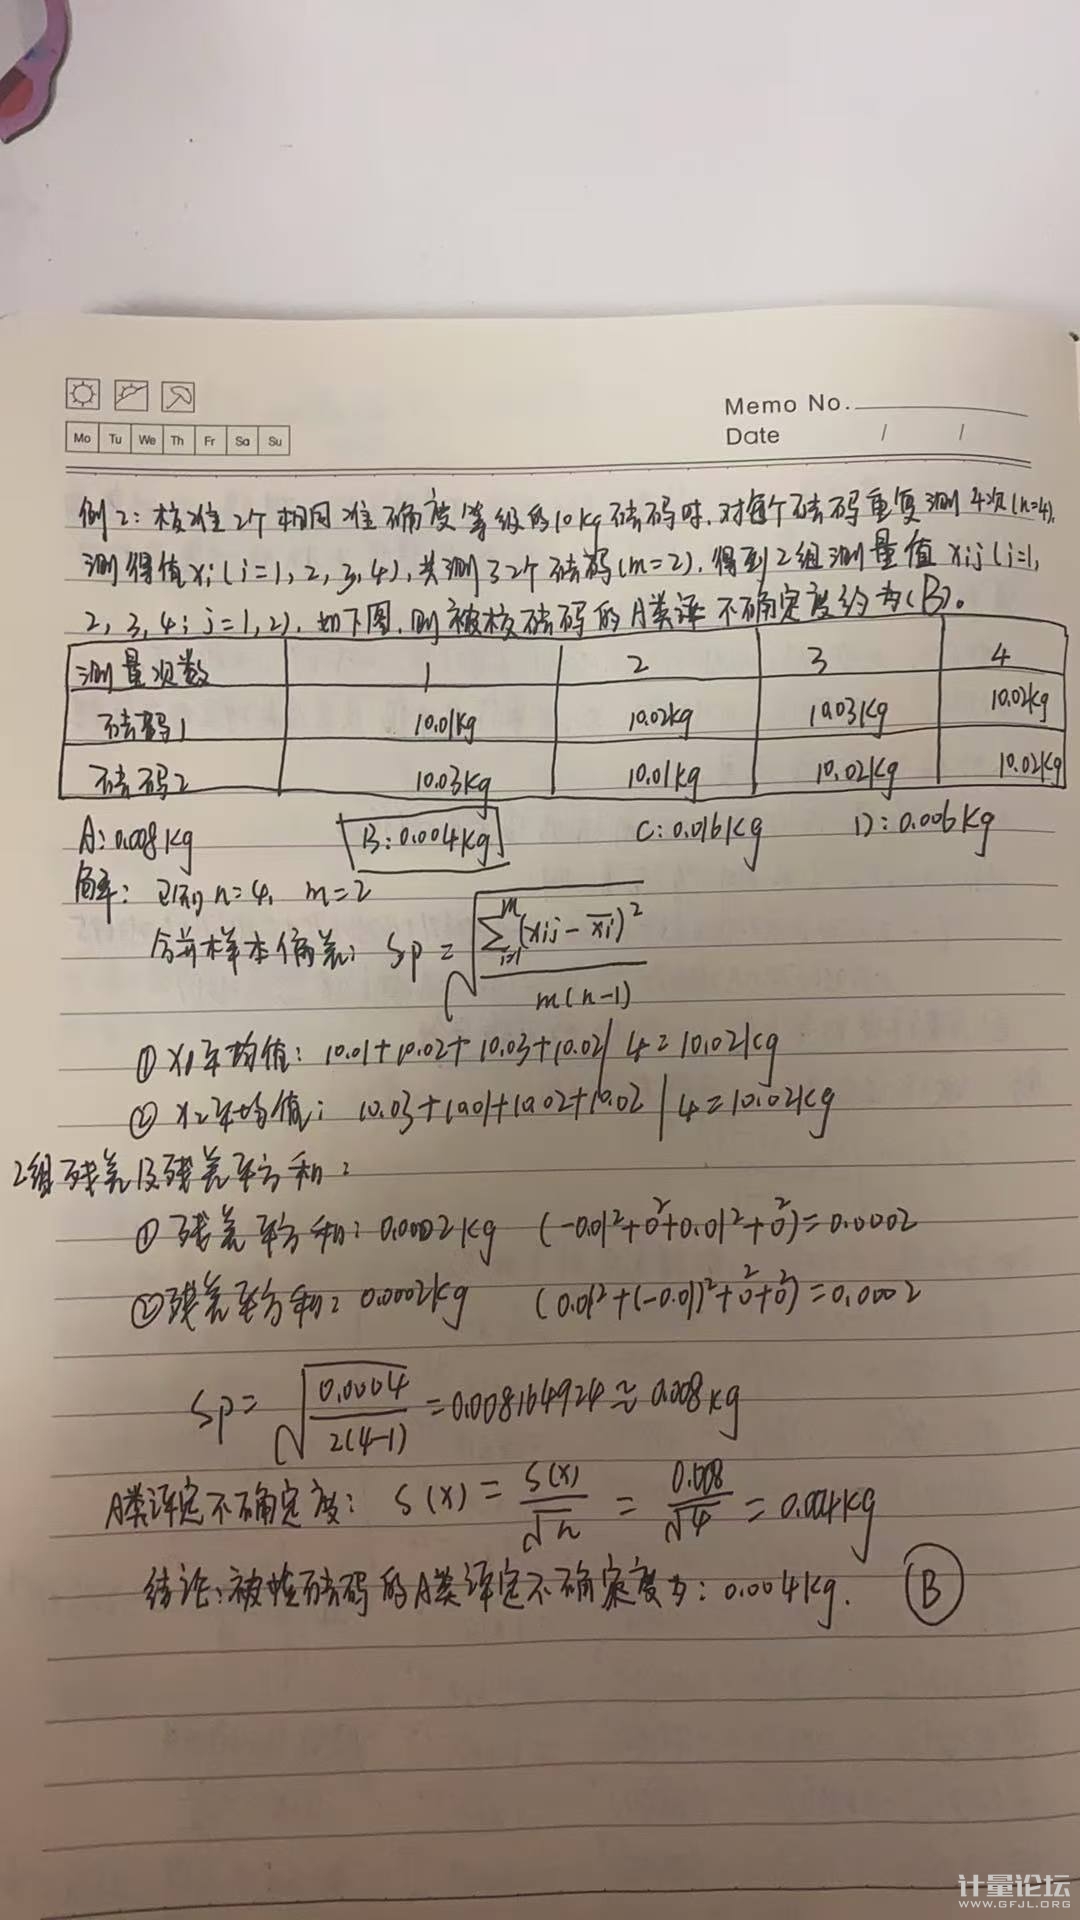 Memo No.
Mo Tu We Th Fr Sa Su
Date / /
例2:核准2个相同准确度等级的10kg砝码时.对每个砝码重复测4次(n=4),
测得值xi(i=1,2,3,4),共测了2个砝码(m=2),得到2组测量值xij(i=1,
2,3,4;j=1,2),如下图.则被校砝码的A类评不确定度约为(B)。
测量次数 1 2 3 4
砝码1 10.01kg 10.02kg 10.03kg 10.02kg
砝码2 10.03kg 10.01kg 10.02kg 10.02kg
A:0.008kg B:0.004kg C:0.016kg D:0.006kg
解:已知n=4, m=2
合并样本偏差: Sp=√(∑(i=1,m)(xij-x̄i)²/m(n-1))
①x1平均值:10.01+10.02+10.03+10.02/4=10.02kg
②x2平均值:10.03+10.01+10.02+10.02/4=10.02kg
2组残差及残差平方和:
①残差平方和:0.0002kg (-0.01²+0²+0.01²+0²)=0.0002
②残差平方和:0.0002kg (0.01²+(-0.01)²+0²+0²)=0.0002
Sp=√(0.0004/2(4-1))=0.008164924≈0.008kg
A类评定不确定度: S(x)=S(x)/√n=0.008/√4=0.004kg
结论:被检砝码的A类评定不确定度为:0.004kg. B
计量论坛
WWW.GFJL.ORG